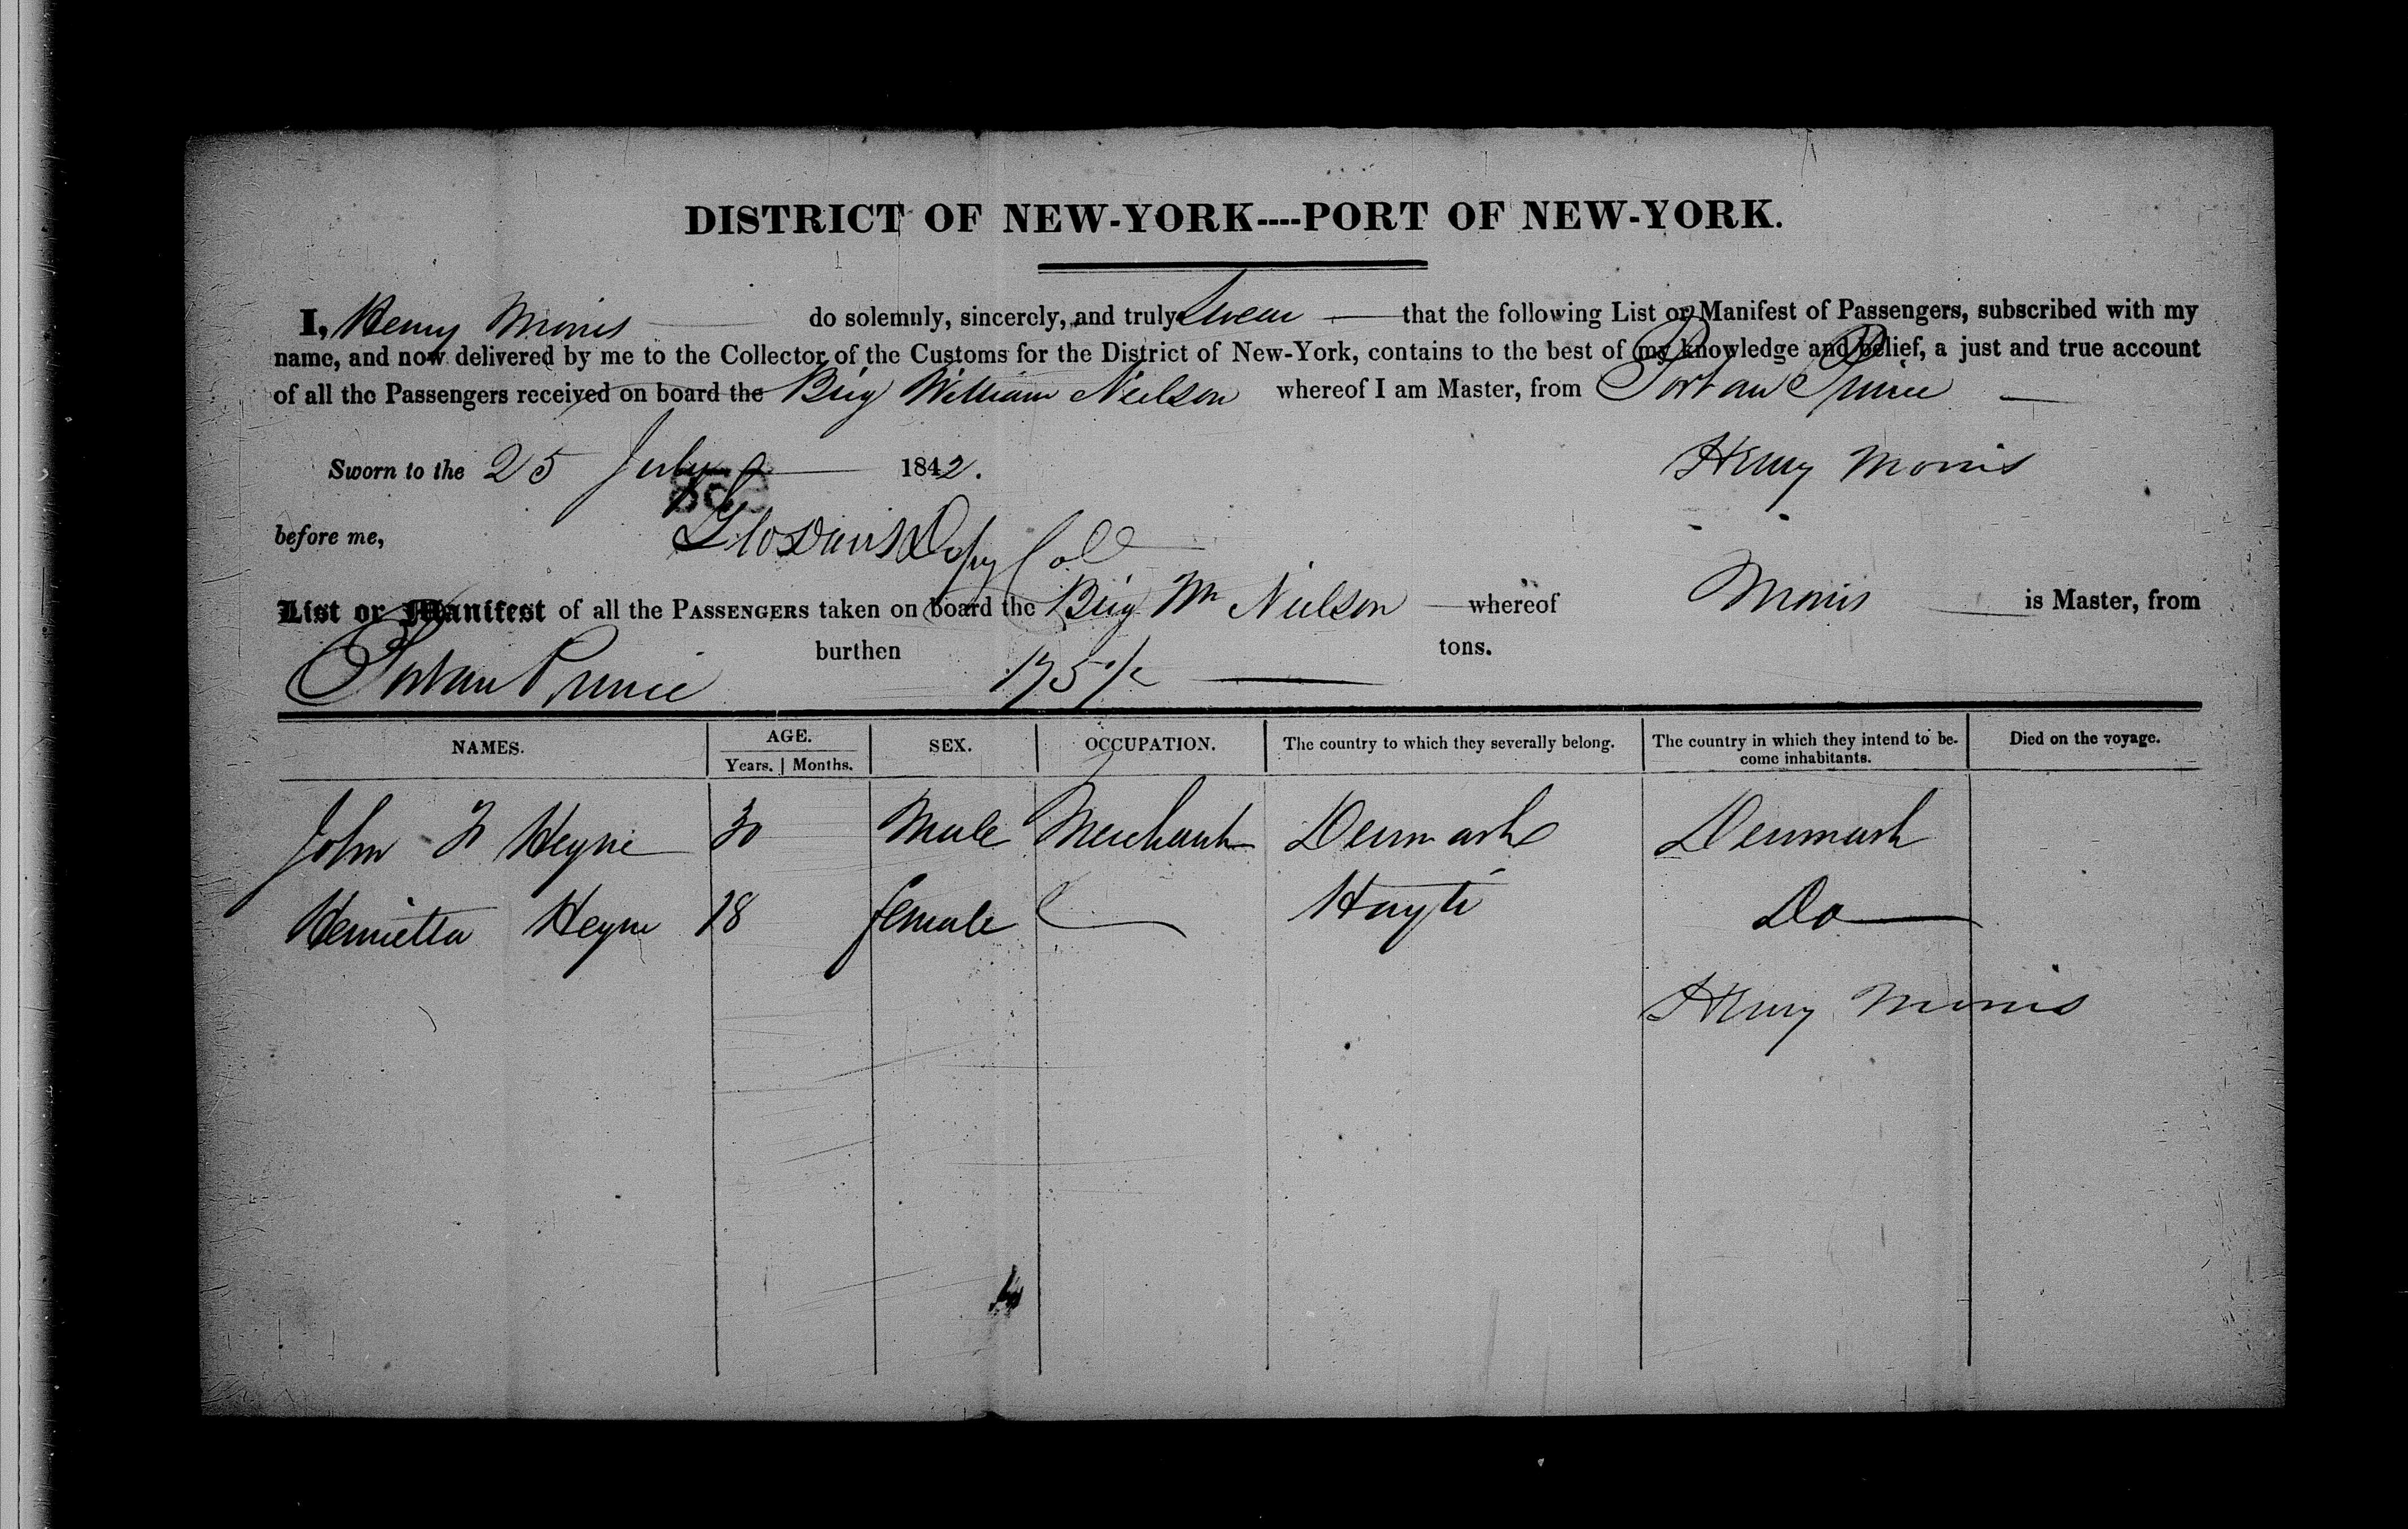 DISTRICT OF NEW-YORK----PORT OF NEW-YORK.
I, Henry Morris do solemnly, sincerely, and truly Swear that the following List or Manifest of Passengers, subscribed with my
name, and now delivered by me to the Collector of the Customs for the District of New-York, contains to the best of my knowledge and belief, a just and true account
of all the Passengers received on board the Brig William Neilson whereof I am Master, from Port au Prince
Sworn to the 25 July 1842. Henry Morris
before me, Davis Depy Coll
List or Manifest of all the PASSENGERS taken on board the Brig Wm Neilson whereof Morris is Master, from
Port au Prince burthen 175 tons.
NAMES. AGE. SEX. OCCUPATION. The country to which they severally belong. The country in which they intend to be- Died on the voyage.
Years. | Months. come inhabitants.
John F Heyne 30 Male Merchant Denmark Denmark
Henrietta Heyne 18 female Hayti Do
Henry Morris